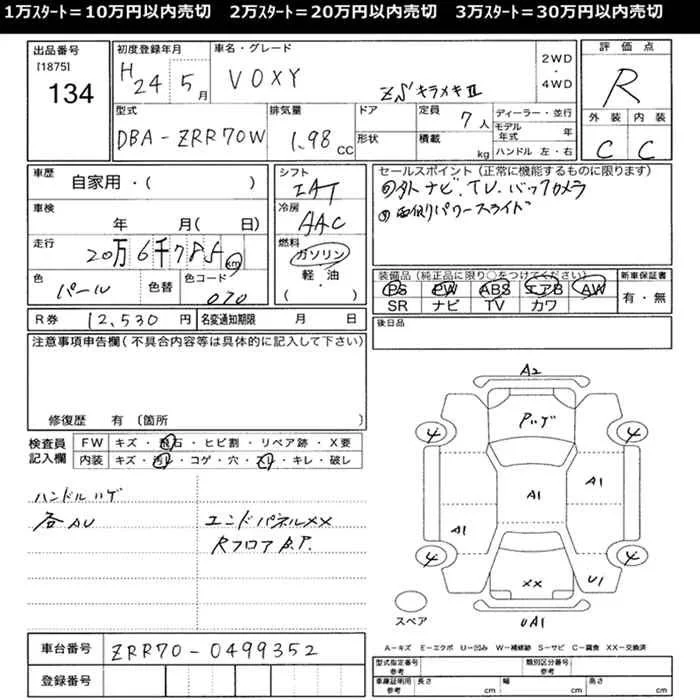 1万ｽﾀｰﾄ＝10万円以内売切　2万ｽﾀｰﾄ＝20万円以内売切　3万ｽﾀｰﾄ＝30万円以内売切
出品番号 [1875] 134
初度登録年月 H24 5月
車名・グレード VOXY ZSキラメキⅡ
2WD・4WD
評価点 R
外装 C 内装 C
型式 DBA-ZRR70W
排気量 1.98 CC
ドア 形状
定員 7人
積載 kg
ディーラー・並行
モデル年式 年
ハンドル 左・右
車歴 自家用・( )
車検 年 月( 日)
走行 20万6千785km
色 パール 色替 色コード 070
シフト IAT
冷房 AAC
燃料 ガソリン 軽・油 ( )
セールスポイント(正常に機能するものに限ります)
ナビ.TV.バックカメラ
パワースライド
装備品(純正品に限り○をつけてください) 新車保証書
PS PW ABS エアB AW 有・無
SR ナビ TV カワ
R券 12,530円 名変通知期限 月 日
後日品
注意事項申告欄(不具合内容等は具体的に記入して下さい)
修復歴 有〔箇所 〕
検査員記入欄
FW キズ・飛石・ヒビ割・リペア跡・X要
内装 キズ・汚レ・コゲ・穴・スレ・キレ・破レ
ハンドルハゲ
各AU エンドパネルXX
RフロアB.P.
A2
Pハゲ
4 4
A1 A1
A1
4 4
XX U1
UA1
スペア
A－キズ E－エクボ U－凹み W－補修跡 S－サビ C－腐食 XX－交換済
車台番号 ZRR70-0499352
登録番号
型式指定番号 参考 類別区分番号 参考
車庫証明用 参考 長さ cm 幅 cm 高さ cm